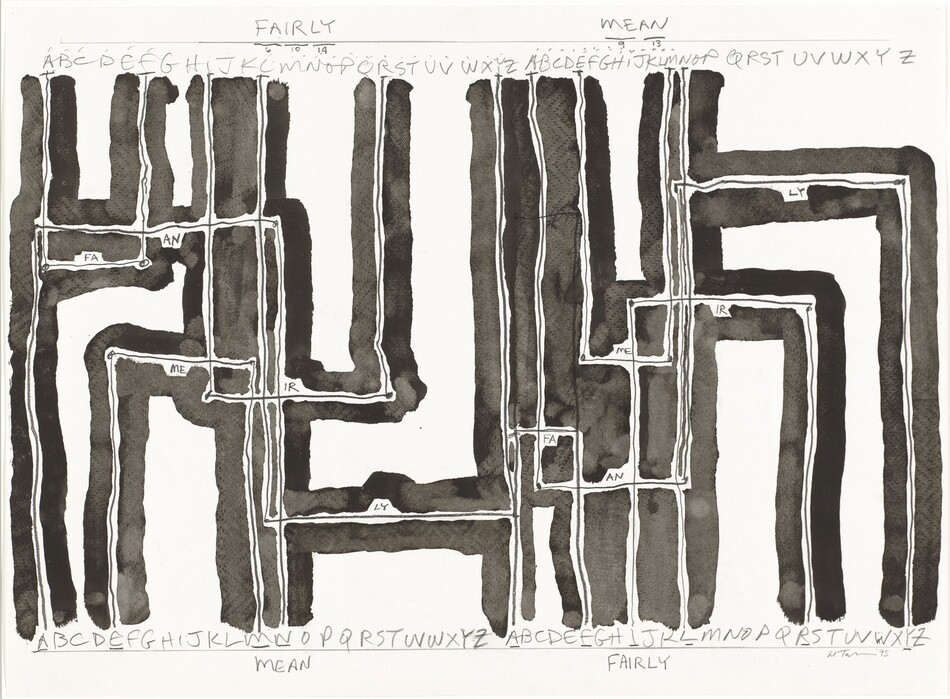 FAIRLY MEAN
6 10 14 9 13
ABCDEFGHIJKLMNOPQRSTUVWXYZ ABCDEFGHIJKLMNOP QRSTUVWXYZ
LY
AN
FA
IR
ME
ME
IR
FA
AN
LY
ABCDEFGHIJKLMNOPQRSTUVWXYZ ABCDEFGHIJKLMNOPQRSTUVWXYZ
MEAN FAIRLY
95